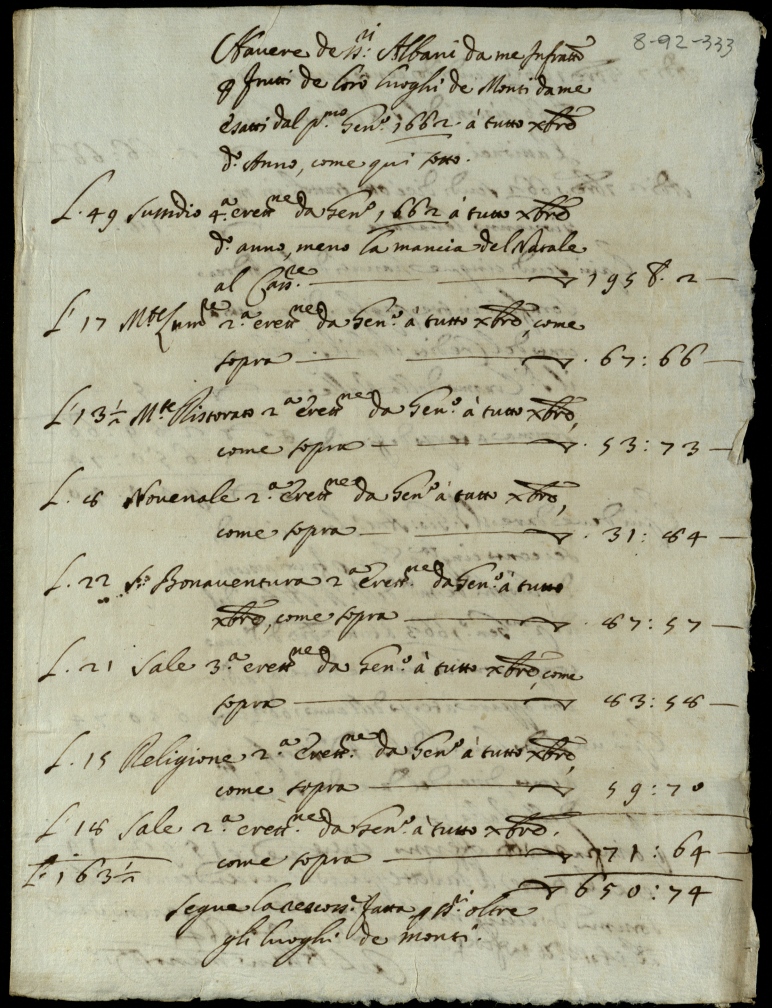 8-92-333
Havere de SS:ri Albani da me Infratto
p frutti de loro luoghi de Monti da me
esatti dal p.mo Gen.o 1662 à tutto xbre
d.o Anno, come qui sotto.
L. 49 Sussidio 4.a erett.ne da Gen.o 1662 à tutto xbre
d.o anno, meno la mancia del Natale
al Cass.re 195:02
L. 17 Mte 2.a erett.ne da Gen.o à tutto xbre, come
sopra 67:66
L. 13½ M.te Ristorato 2.a erett.ne da Gen.o à tutto xbre,
come sopra 53:73
L. 8 Novenale 2.a Erett.ne da Gen.o à tutto xbre,
come sopra 31:84
L. 22 S. Bonaventura 2.a Erett.ne da Gen.o à tutto
xbre, come sopra 87:57
L. 21 Sale 3.a erett.ne da Gen.o à tutto xbre, come
sopra 83:58
L. 15 Religione 2.a Erett.ne da Gen.o à tutto xbre,
come sopra 59:70
L. 18 Sale 2.a erett.ne da Gen.o à tutto xbre.
come sopra 71:64
L. 163½ 650:74
segue la fatta p oltre
gli luoghi de monti.